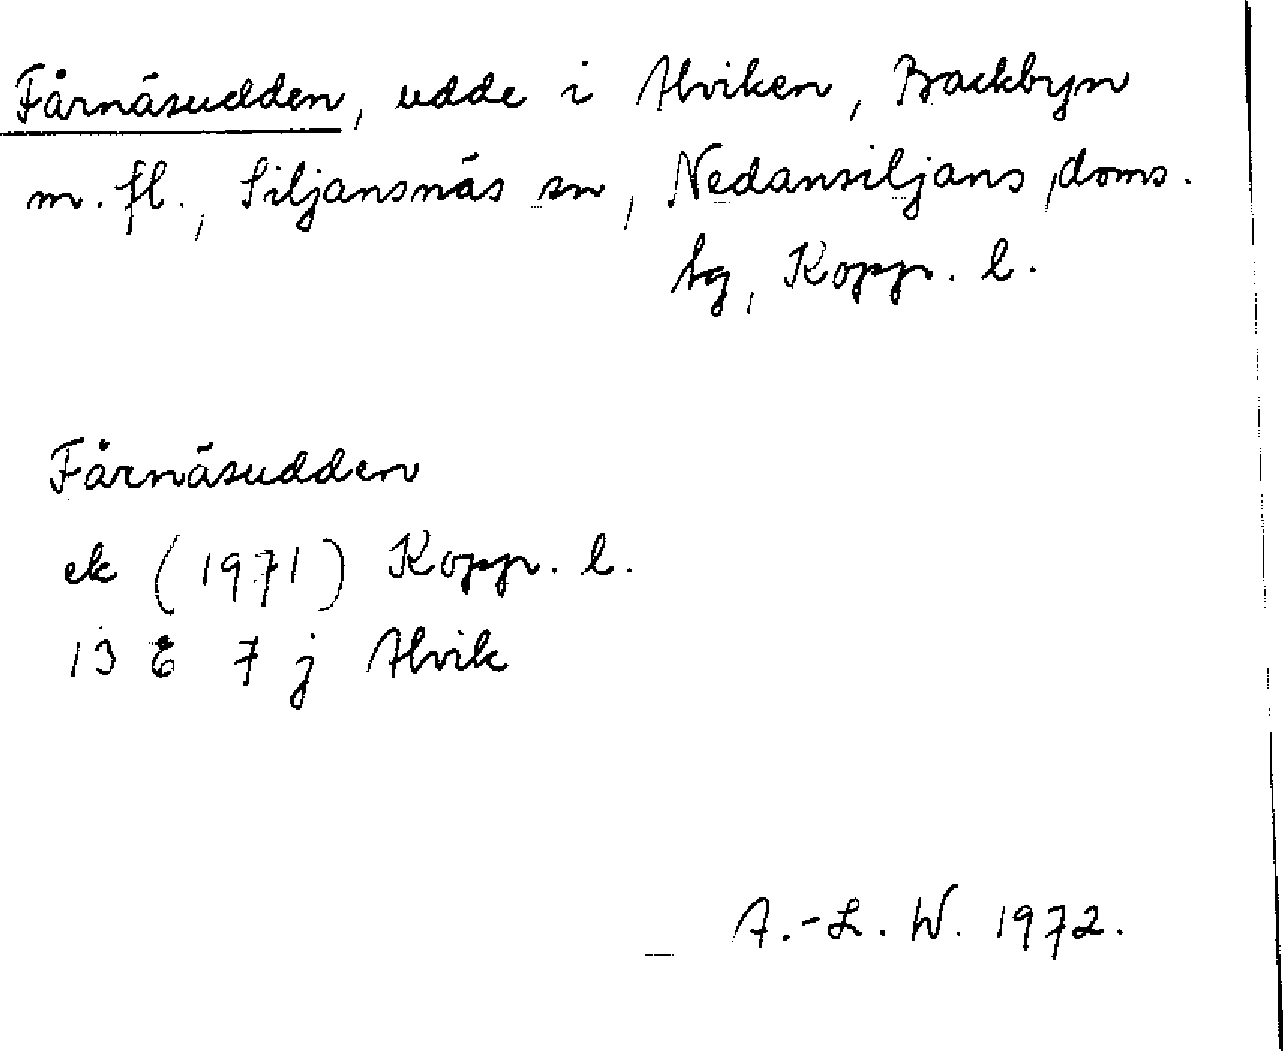 Fårnäsudden, udde i Alviken, Backbyn
m. fl., Siljansnäs sn, Nedansiljans doms.
tg, Kopp. l.
Fårnäsudden
ek (1971) Kopp. l.
13 E 7 j Alvik
A.-L. W. 1972.